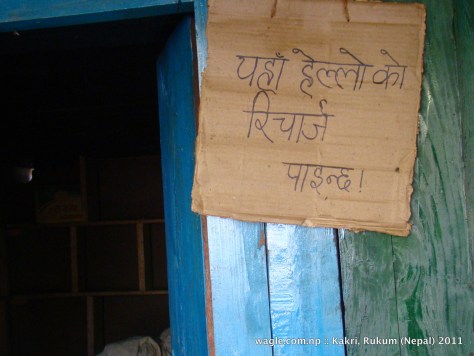 यहाँ हेल्लो को
रिचार्ज
पाइन्छ!
wagle.com.np :: Kakri, Rukum (Nepal) 2011